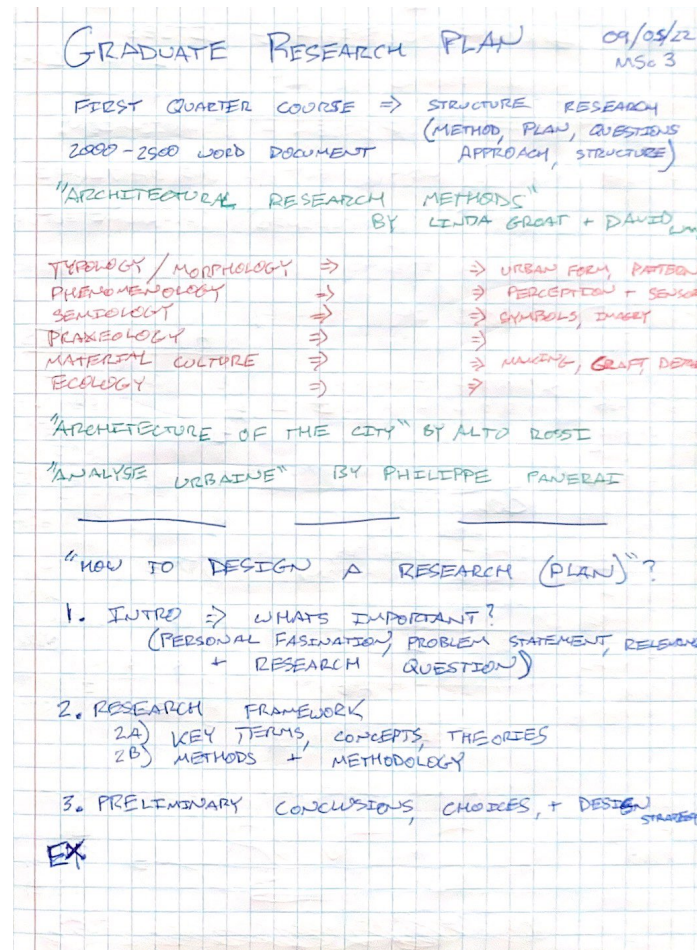 GRADUATE RESEARCH PLAN 09/05/22
MSc 3
FIRST QUARTER COURSE => STRUCTURE RESEARCH
(METHOD, PLAN, QUESTIONS
2000-2500 WORD DOCUMENT APPROACH, STRUCTURE)
"ARCHITECTURAL RESEARCH METHODS"
BY LINDA GROAT + DAVID
TYPOLOGY / MORPHOLOGY => => URBAN FORM, PATTERN
PHENOMENOLOGY => => PERCEPTION + SENSOR
SEMIOLOGY => => SYMBOLS, IMAGERY
PRAXEOLOGY => =>
MATERIAL CULTURE => => MAKING, CRAFT, DETA
ECOLOGY => =>
"ARCHITECTURE OF THE CITY" BY ALTO ROSSI
"ANALYSE URBAINE" BY PHILIPPE PANERAI
"HOW TO DESIGN A RESEARCH (PLAN)"?
1. INTRO => WHATS IMPORTANT?
(PERSONAL FASINATION, PROBLEM STATEMENT,
+ RESEARCH QUESTION)
2. RESEARCH FRAMEWORK
2A) KEY TERMS, CONCEPTS, THEORIES
2B) METHODS + METHODOLOGY
3. PRELIMINARY CONCLUSIONS, CHOICES, + DESIGN
EX